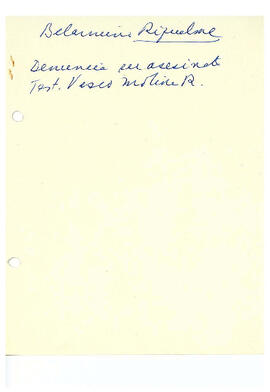 Belarmino Riquelme
Denuncia en asesinato
Test. Vasco Molina R.